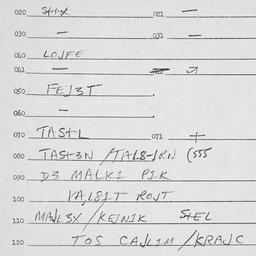 020 STAX 021 —
030 — 031 —
040 LOJFE
041 —
050 FEJ3T
060 —
070 TASTL 071 +
080 TAST3N / TAL8-IRN (555
090 D3 MALKI PIK
100 VAL8IT ROJT
110 MAJL3Y / KEJNIK STEL
120 TOS CAJLIM / KRAJC